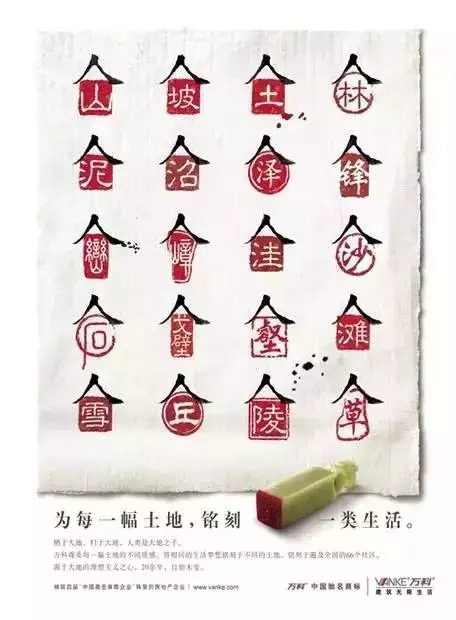 人 人 人 人
山 坡 土 林
人 人 人 人
泥 沼 泽 锋
人 人 人 人
峦 嶂 洼 沙
人 人 人 人
石 戈壁 壑 滩
人 人 人 人
雪 丘 陵 草
为每一幅土地，铭刻 一类生活。
栖于大地，归于大地，人类是大地之子。
万科尊重每一幅土地的不同质感，将相同的生活梦想播刻于不同的土地，铭刻于遍及全国的66个社区。
源于大地的理想主义之心，20余年，自始未变。
www.vanke.com
万科 中国驰名商标
VANKE 万科
建筑无限生活